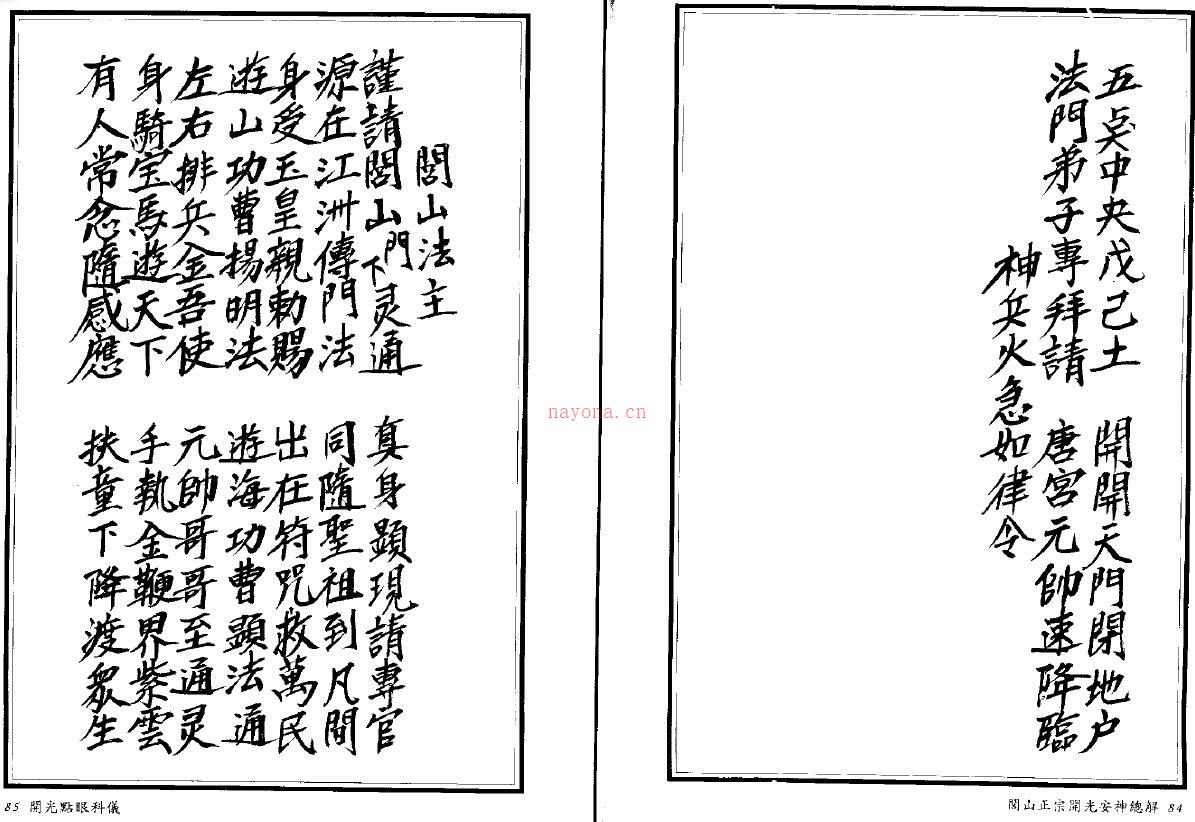 五点中央戊己土　開開天門閉地户
法門弟子專拜請　唐宮元帥速降臨
神兵火急如律令
閭山正宗開光安神總解 84
閭山法主
謹請閭山門下灵通　真身顕現請專官
源在江洲傳門法　同隨聖祖到凡間
身受玉皇親勅賜　出在符咒救萬民
遊山功曹揚明法　遊海功曹顕法通
左右排兵金吾使　元帥哥哥至通灵
身騎宝馬遊天下　手執金鞭界紫雲
有人常念隨感應　扶童下降渡眾生
85 開光點眼科儀
nayona.cn